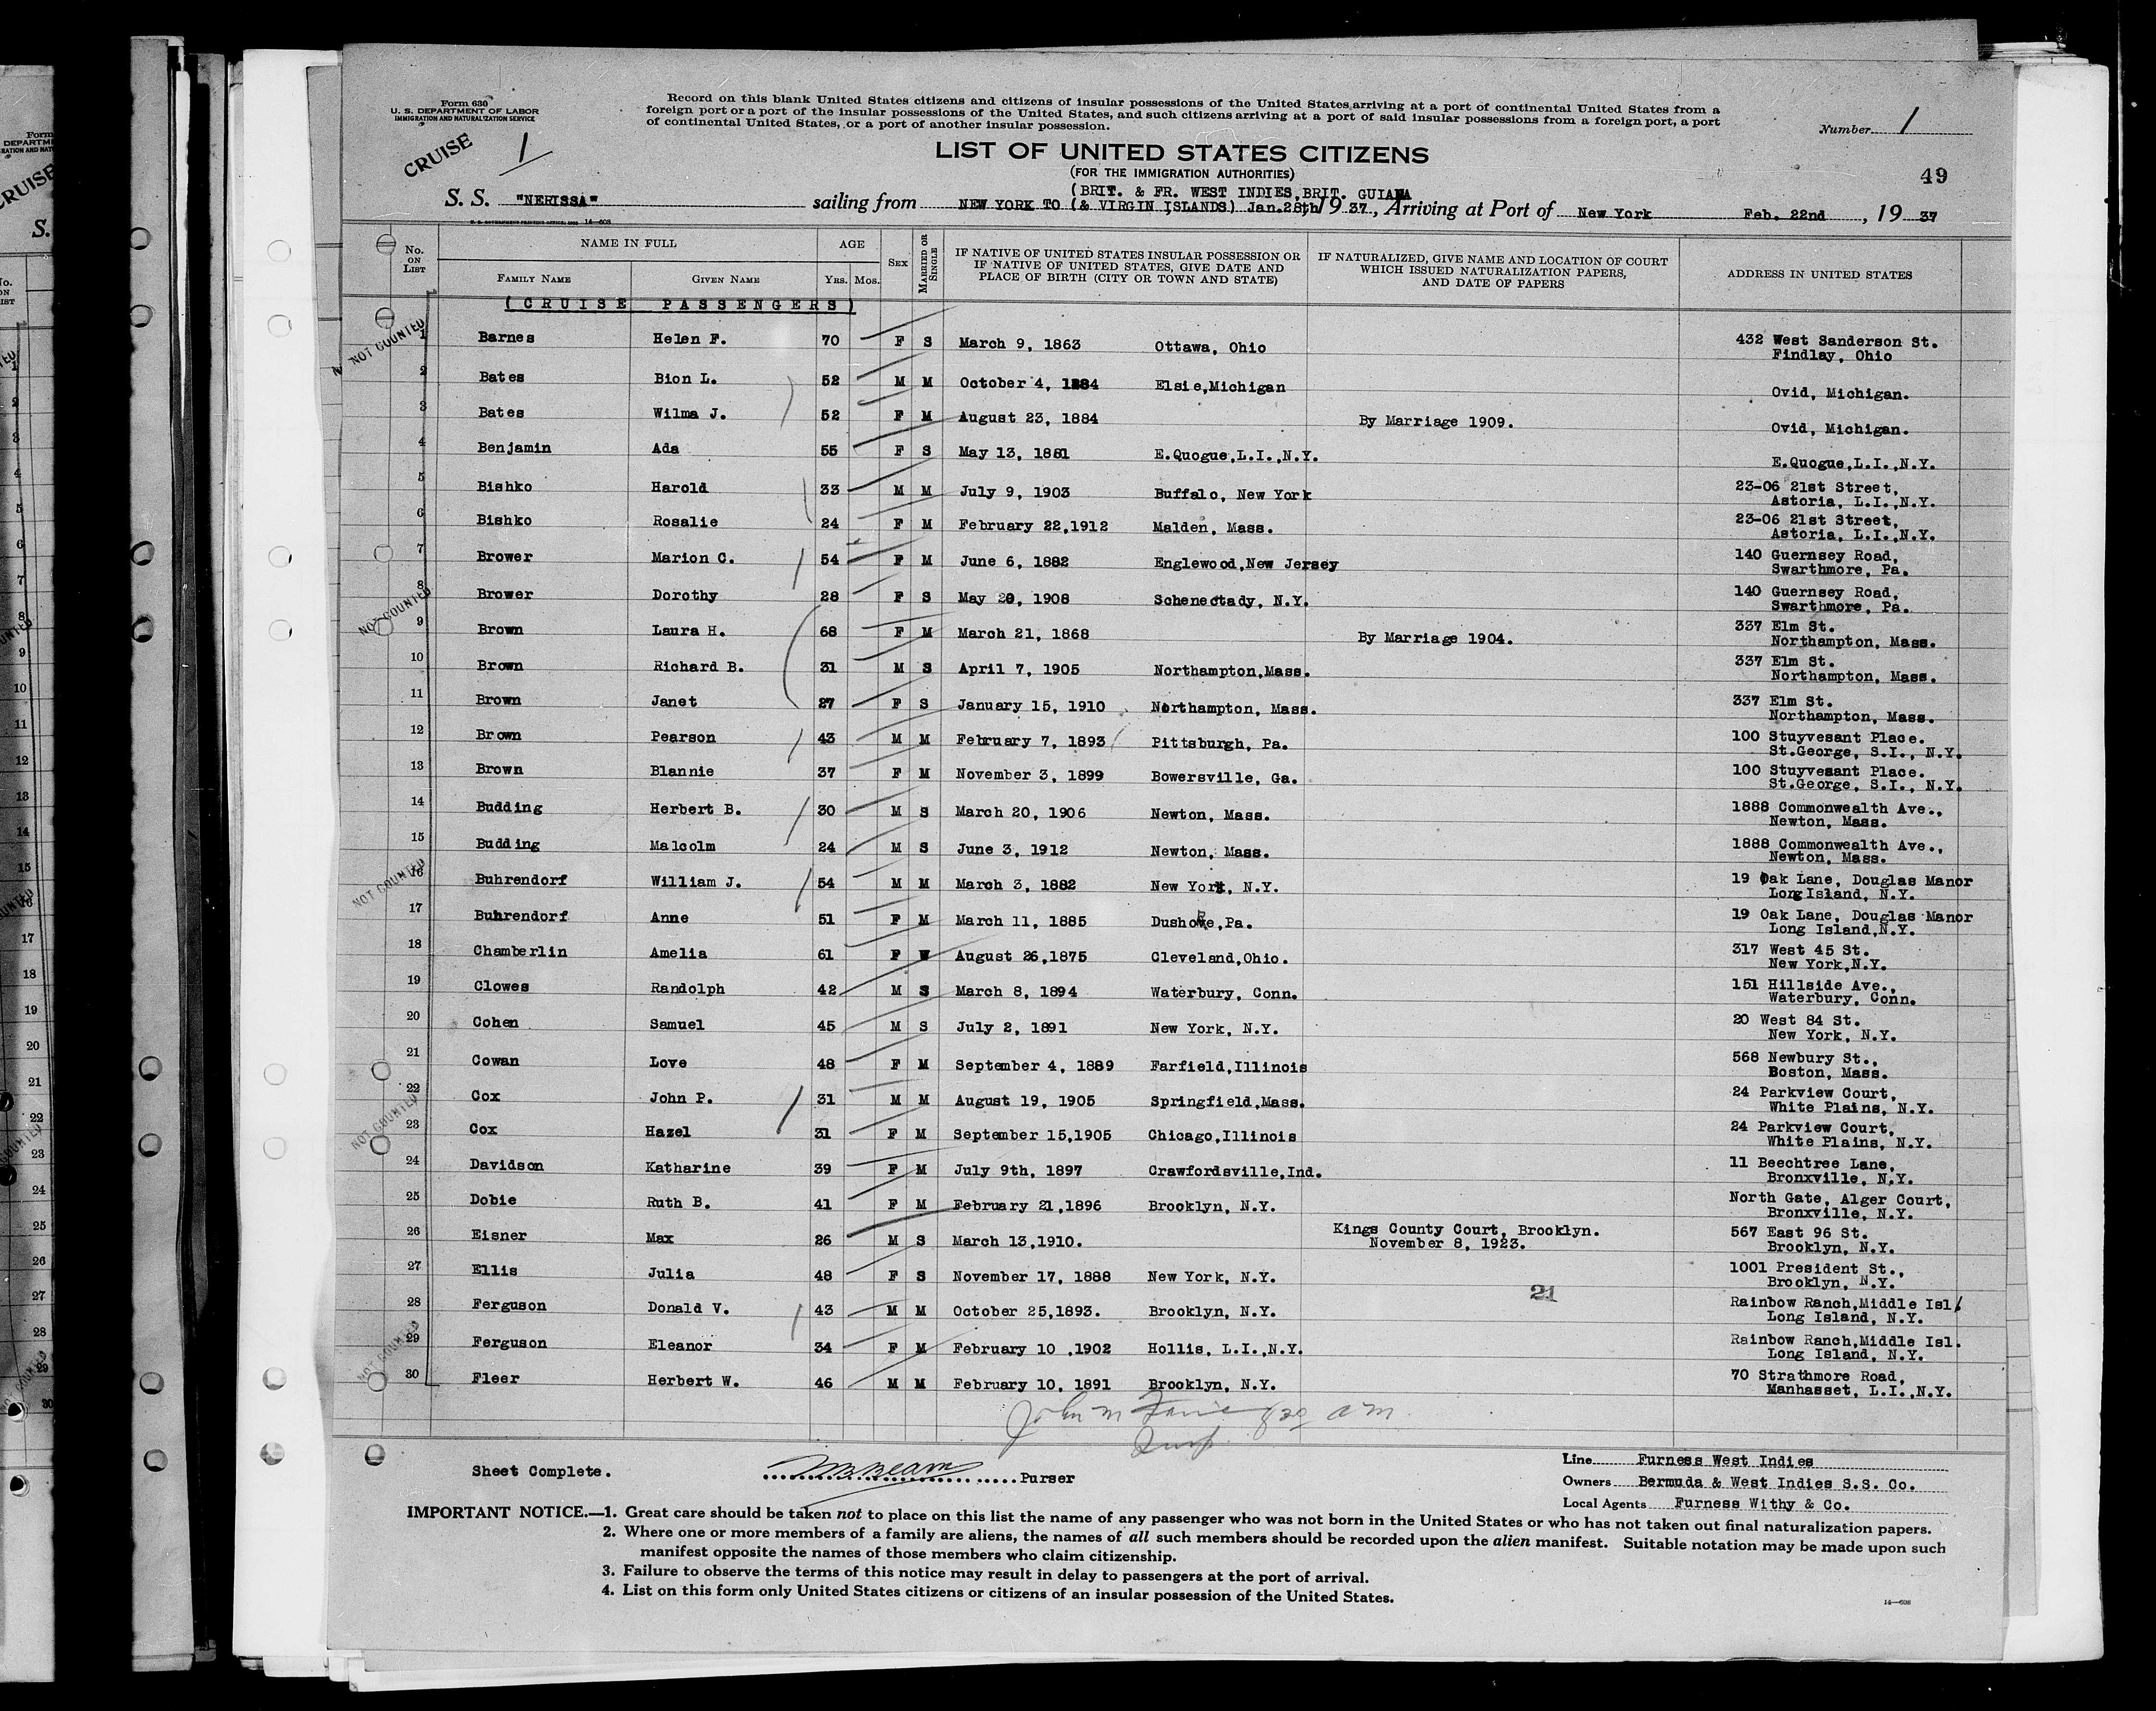 Form 630
U. S. DEPARTMENT OF LABOR
IMMIGRATION AND NATURALIZATION SERVICE
Record on this blank United States citizens and citizens of insular possessions of the United States arriving at a port of continental United States from a
foreign port or a port of the insular possessions of the United States, and such citizens arriving at a port of said insular possessions from a foreign port, a port
of continental United States, or a port of another insular possession.
Number 1
CRUISE 1
LIST OF UNITED STATES CITIZENS
(FOR THE IMMIGRATION AUTHORITIES)
49
(BRIT. & FR. WEST INDIES, BRIT. GUIANA
S. S. "NERISSA" sailing from NEW YORK TO (& VIRGIN ISLANDS) Jan.28th, 19 37, Arriving at Port of New York Feb. 22nd, 19 37
No. ON LIST NAME IN FULL FAMILY NAME GIVEN NAME AGE YRS. MOS. SEX MARRIED OR SINGLE IF NATIVE OF UNITED STATES INSULAR POSSESSION OR IF NATIVE OF UNITED STATES, GIVE DATE AND PLACE OF BIRTH (CITY OR TOWN AND STATE) IF NATURALIZED, GIVE NAME AND LOCATION OF COURT WHICH ISSUED NATURALIZATION PAPERS, AND DATE OF PAPERS ADDRESS IN UNITED STATES
(CRUISE PASSENGERS)
NOT COUNTED
1 Barnes Helen F. 70 F S March 9, 1863 Ottawa, Ohio 432 West Sanderson St. Findlay, Ohio
2 Bates Bion L. 52 M M October 4, 1884 Elsie,Michigan Ovid, Michigan.
3 Bates Wilma J. 52 F M August 23, 1884 By Marriage 1909. Ovid, Michigan.
4 Benjamin Ada 55 F S May 13, 1881 E.Quogue,L.I.,N.Y. E.Quogue,L.I.,N.Y.
5 Bishko Harold 33 M M July 9, 1903 Buffalo, New York 23-06 21st Street, Astoria, L.I.,N.Y.
6 Bishko Rosalie 24 F M February 22,1912 Malden, Mass. 23-06 21st Street, Astoria, L.I.,N.Y.
7 Brower Marion C. 54 F M June 6, 1882 Englewood,New Jersey 140 Guernsey Road, Swarthmore, Pa.
8 Brower Dorothy 28 F S May 20, 1908 Schenectady, N.Y. 140 Guernsey Road, Swarthmore, Pa.
NOT COUNTED
9 Brown Laura H. 68 F M March 21, 1868 By Marriage 1904. 337 Elm St. Northampton, Mass.
10 Brown Richard B. 31 M S April 7, 1905 Northampton,Mass. 337 Elm St. Northampton, Mass.
11 Brown Janet 27 F S January 15, 1910 Northampton, Mass. 337 Elm St. Northampton, Mass.
12 Brown Pearson 43 M M February 7, 1893 Pittsburgh, Pa. 100 Stuyvesant Place. St.George, S.I., N.Y.
13 Brown Blannie 37 F M November 3, 1899 Bowersville, Ga. 100 Stuyvesant Place. St.George, S.I., N.Y.
14 Budding Herbert B. 30 M S March 20, 1906 Newton, Mass. 1888 Commonwealth Ave., Newton, Mass.
15 Budding Malcolm 24 M S June 3, 1912 Newton, Mass. 1888 Commonwealth Ave., Newton, Mass.
NOT COUNTED
16 Buhrendorf William J. 54 M M March 3, 1882 New York, N.Y. 19 Oak Lane, Douglas Manor Long Island, N.Y.
17 Buhrendorf Anne 51 F M March 11, 1885 Dushore,Pa. 19 Oak Lane, Douglas Manor Long Island,N.Y.
18 Chamberlin Amelia 61 F W August 26,1875 Cleveland,Ohio. 317 West 45 St. New York,N.Y.
19 Clowes Randolph 42 M S March 8, 1894 Waterbury, Conn. 151 Hillside Ave., Waterbury, Conn.
20 Cohen Samuel 45 M S July 2, 1891 New York, N.Y. 20 West 84 St. New York, N.Y.
21 Cowan Love 48 F M September 4, 1889 Farfield,Illinois 568 Newbury St., Boston, Mass.
22 Cox John P. 31 M M August 19, 1905 Springfield,Mass. 24 Parkview Court, White Plains, N.Y.
NOT COUNTED
23 Cox Hazel 31 F M September 15,1905 Chicago,Illinois 24 Parkview Court, White Plains, N.Y.
24 Davidson Katharine 39 F M July 9th, 1897 Crawfordsville,Ind. 11 Beechtree Lane, Bronxville, N.Y.
25 Dobie Ruth B. 41 F M February 21,1896 Brooklyn, N.Y. North Gate, Alger Court, Bronxville, N.Y.
26 Eisner Max 26 M S March 13,1910. Kings County Court, Brooklyn. November 8, 1923. 567 East 96 St. Brooklyn, N.Y.
27 Ellis Julia 48 F S November 17, 1888 New York, N.Y. 1001 President St., Brooklyn, N.Y.
21
28 Ferguson Donald V. 43 M M October 25,1893. Brooklyn, N.Y. Rainbow Ranch,Middle Isl. Long Island, N.Y.
NOT COUNTED
29 Ferguson Eleanor 34 F M February 10 ,1902 Hollis, L.I.,N.Y. Rainbow Ranch,Middle Isl. Long Island, N.Y.
30 Fleer Herbert W. 46 M M February 10, 1891 Brooklyn, N.Y. 70 Strathmore Road, Manhasset, L.I.,N.Y.
John M
Insp.
Sheet Complete. Purser
Line Furness West Indies
Owners Bermuda & West Indies S.S. Co.
Local Agents Furness Withy & Co.
IMPORTANT NOTICE.—1. Great care should be taken not to place on this list the name of any passenger who was not born in the United States or who has not taken out final naturalization papers.
2. Where one or more members of a family are aliens, the names of all such members should be recorded upon the alien manifest. Suitable notation may be made upon such
manifest opposite the names of those members who claim citizenship.
3. Failure to observe the terms of this notice may result in delay to passengers at the port of arrival.
4. List on this form only United States citizens or citizens of an insular possession of the United States.
14—608